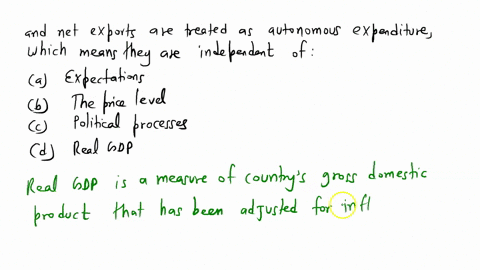 and net exports are treated as autonomous expenditure,
which means they are independent of:
(a) Expectations
(b) The price level
(c) Political processes
(d) Real GDP
Real GDP is a measure of country's gross domestic
product that has been adjusted for infl